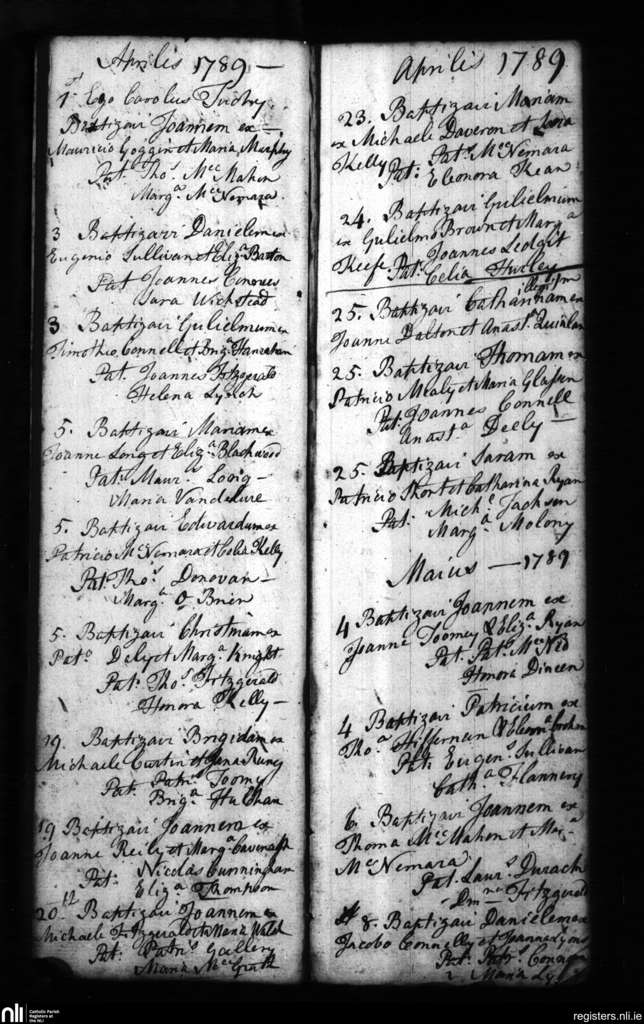 Aprilis 1789 —
1st Ego Carolus
Baptizavi Joannem ex —
Mauricio Goggin et Maria Murphy
Pat. Thos Mc Mahon
Marga Mc Nemara
3 Baptizavi Danielem ex
Eugenio Sullivan et Eliza Barton
Pat Joannes
Sara Wickstead
3 Baptizavi Gulielmum ex
Timothio Connell et Briga Hanrahan
Pat. Joannes Fitzgerald
Helena Lynch
5. Baptizavi Mariam ex
Joanne Long et Eliza Blackwood
Pat: Maurs Long —
Maria Vandelure
5. Baptizavi Edwardum ex
Patricio Mc Nemara et Celia Kelly
Pat: Thos Donovan —
Marga O Brien
5. Baptizavi ex
Pato Daly et Marga Knight
Pat: Thos Fitzgerald
Honora Kelly —
19. Baptizavi Brigidam ex
Michaele Curtin et
Pat. Patrs Toomy
Briga
19 Baptizavi Joannem ex
Joanne Reily et Marga Cavenagh
Pat: Nicolas Cunningham
Eliza Thompson
20th Baptizavi Joannem ex
Michaele Fitzgerald et Maria Walsh
Pat: Patrs Gallery
Maria McGrath
Aprilis 1789
23. Baptizavi Mariam
ex Michaele Daveron et
Kelly Pat: Pats Mc Nemara
Eleonora Kean
24. Baptizavi Gulielmum
ex Gulielmo Brown et Marga
Keefe. Pat: Joannes
Celia Hurley
25. Baptizavi Catharinam ex
Joanne Dalton et Anast. Quinlan
25. Baptizavi Thomam ex
Patricio Mealy et Maria
Pat. Joannes Connell
Anasta Deely —
25 Baptizavi Saram ex
Patricio Short et Catharina Ryan
Pat: Michl Jackson
Marga Molony
Maius — 1789
4 Baptizavi Joannem ex
Joanne Toomey & Eliza Ryan
Pat. Pats
Honora Dineen
4 Baptizavi Patricium ex
Thoa Hiffernan &
Pat: Eugens Sullivan
Catha Flannery
6. Baptizavi Joannem ex
Thoma Mc Mahon et Mara
Mc Nemara
Pat. Laurs Durach
Fitzgerald
8. Baptizavi Danielem ex
Jacobo Connelly et Joanna Lyons
Pat: Patrs
Maria
nli
Catholic Parish
Registers at
the NLI
registers.nli.ie